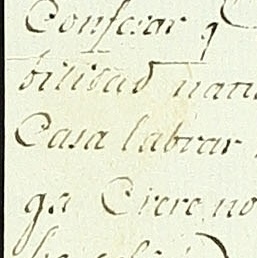 Confesar q
bilidad natu
Casa labrar
ga Crere no